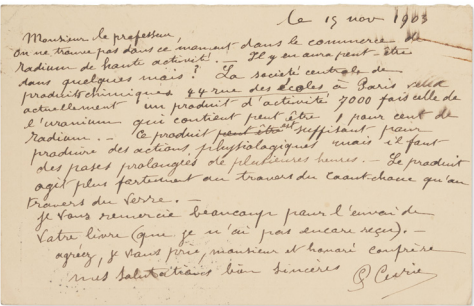 le 15 nov 1903
Monsieur le professeur,
on ne trouve pas dans ce moment dans le commerce de
radium de haute activité. Il y en aura peut être
dans quelques mois? La société centrale de
produits chimiques 44 rue des écoles à Paris vend
actuellement un produit d'activité 7000 fois celle de
l'uranium qui contient peut être 1 pour cent de
radium. - Ce produit peut être est suffisant pour
produire des actions physiologiques mais il faut
des poses prolongées de plusieurs heures. - Le produit
agit plus fortement au travers du caoutchouc qu'au
travers du verre. -
Je vous remercie beaucoup pour l'envoi de
votre livre (que je n'ai pas encore reçu). -
agréez, je vous prie, monsieur et honoré confrère
mes salutations bien sincères
P Curie